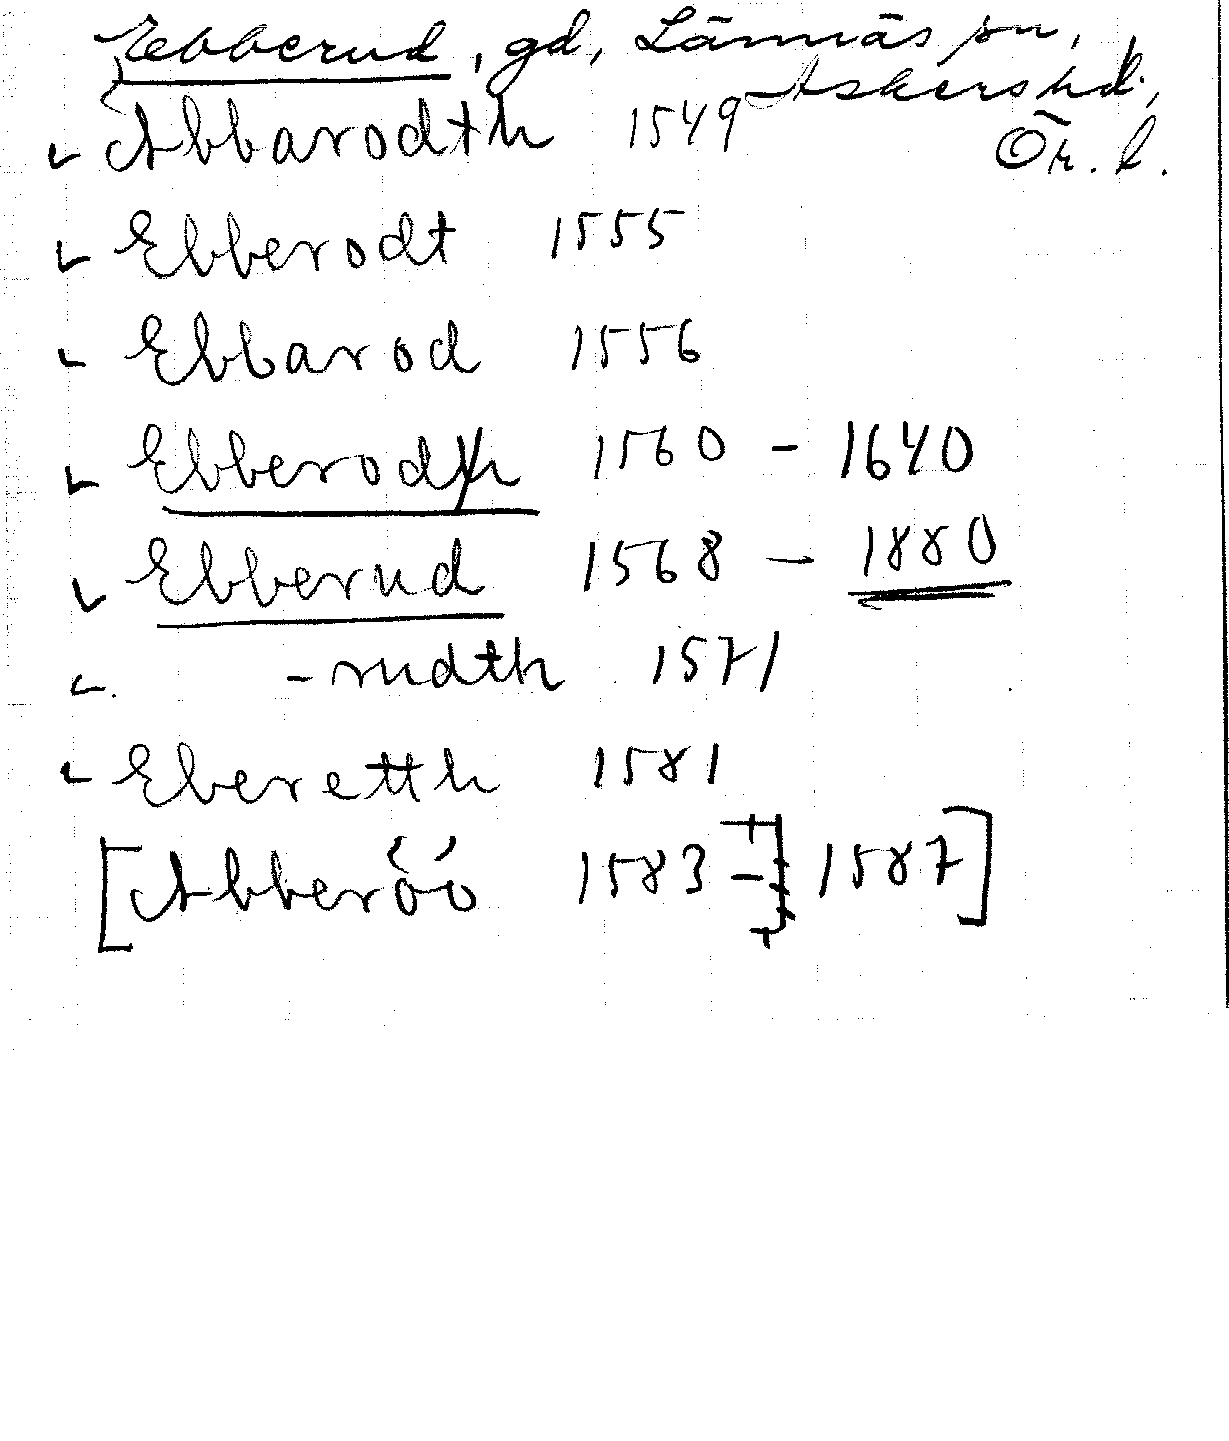 Ebberud, gd, Lännäs sn,
Askers hd,
Ör. l.
Abbarodth 1549
Ebberodt 1555
Ebbarod 1556
Ebberodh 1560 - 1640
Ebberud 1568 - 1880
- rudth 1571
Eberetth 1581
[Abberöö 1583 - 1587]